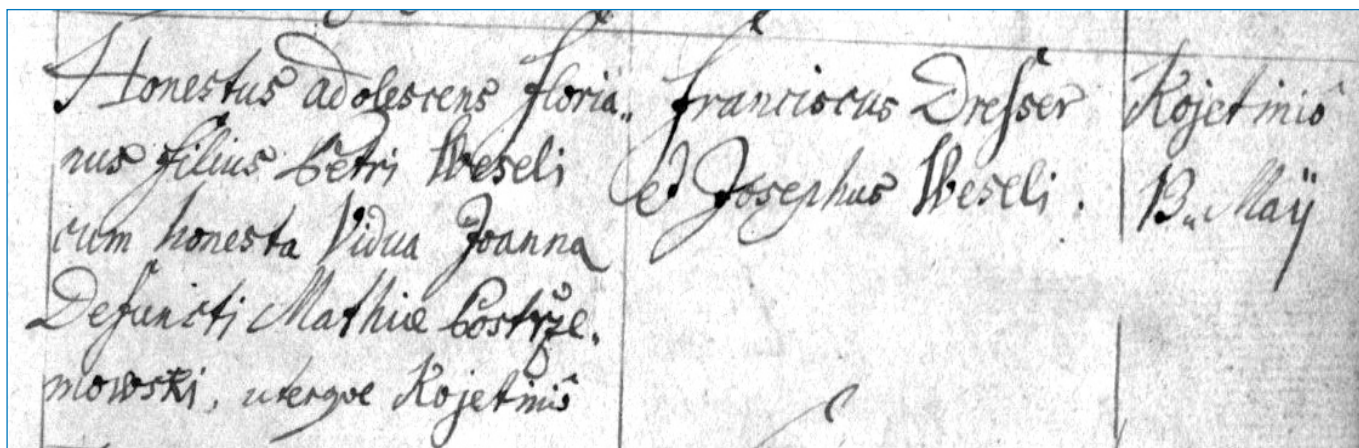 Honestus adolescens Floria„
nus filius Petri Weseli
cum honesta Vidua Joanna
Defuncti Mathiæ Costrze„
mowski, uterque Kojetinis
Franciscus Dresser
et Josephus Weseli.
Kojetinis
13„ Maÿ